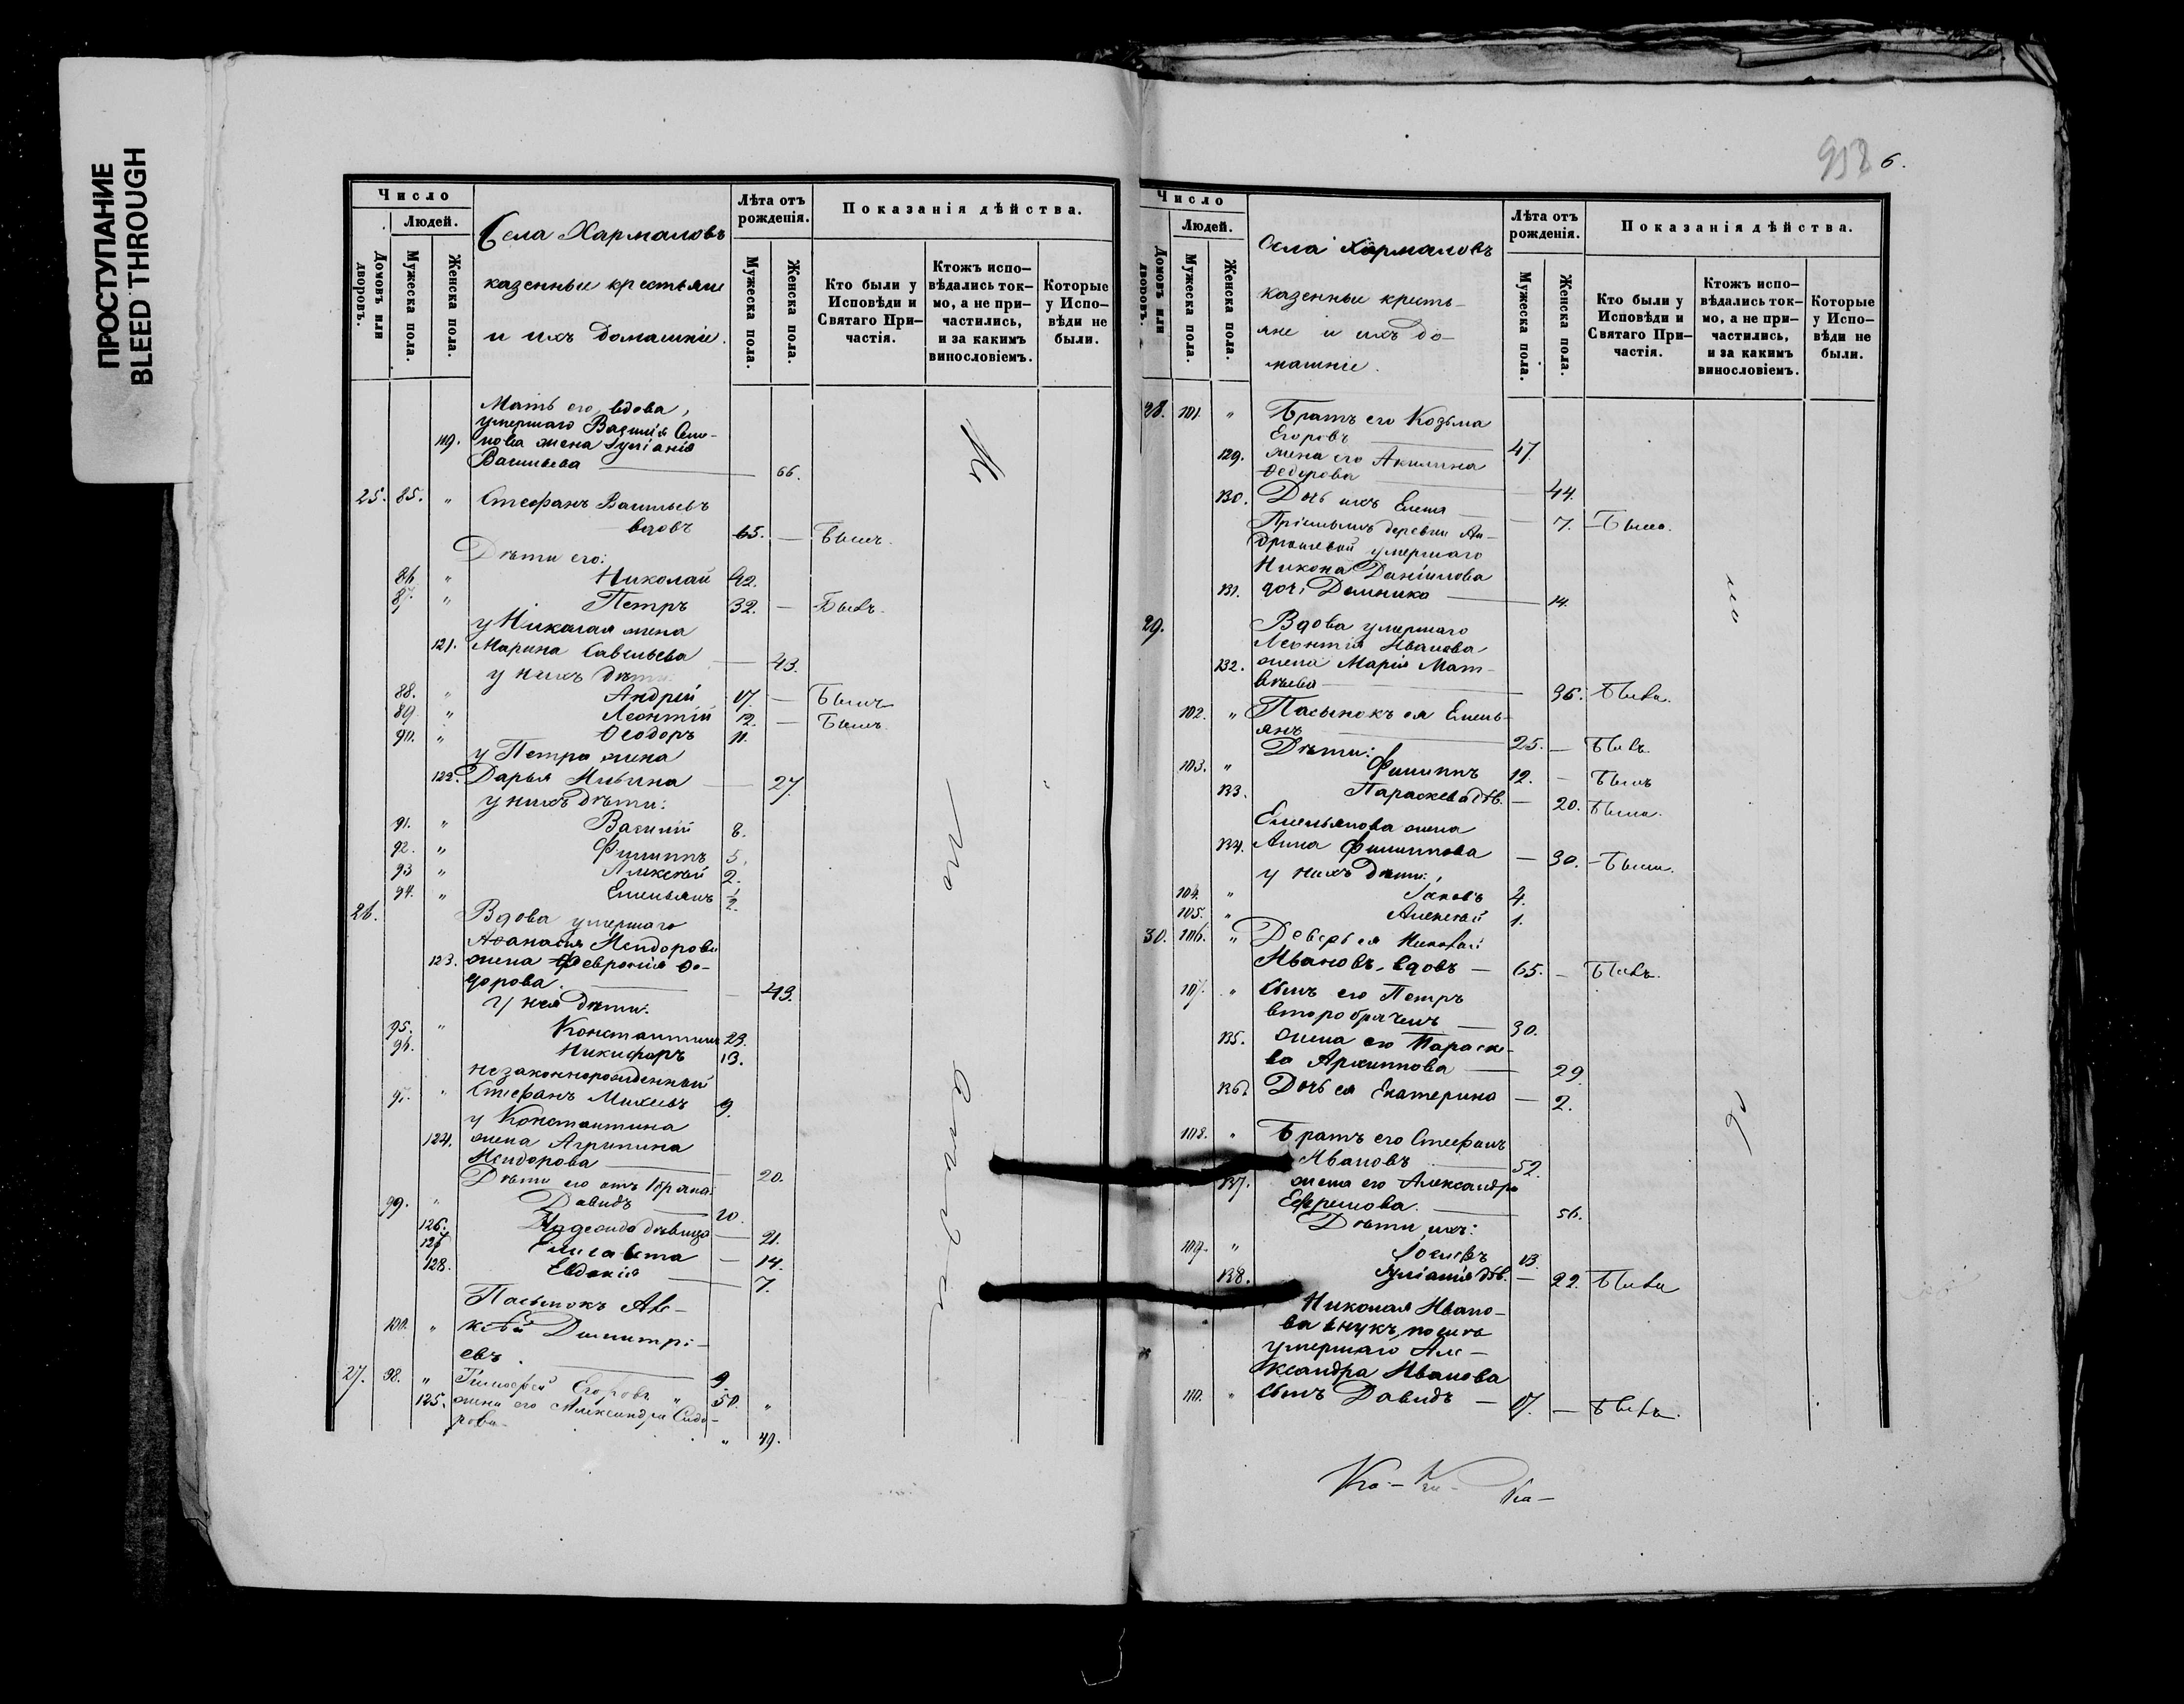 ПРОСТУПАНИЕ
BLEED THROUGH
Число
Людей.
Домовъ или дворовъ.
Мужеска пола.
Женска пола.
Села Хармаловъ
казенные крестьяне
и ихъ домашніе.
Лѣта отъ рожденія.
Мужеска пола.
Женска пола.
Показанія дѣйства.
Кто были у Исповѣди и Святаго Причастія.
Ктожъ исповѣдались токмо, а не причастились, и за какимъ винословіемъ.
Которые у Исповѣди не были.
Мать его, вдова,
умершаго Василія Семе-
119. нова жена Іуліанія
Васильева — 66.
25. 85. " Стефанъ Васильевъ
вдовъ 65. — Былъ.
Дѣти его:
86. " Николай 42.
87. " Петръ 32. — Былъ.
у Николая жена
121. Марина Савельева — 43.
у нихъ дѣти:
88. " Андрей 17. — Былъ
89. " Леонтій 12. — Былъ
90. " Ѳеодоръ 11.
у Петра жена
122. Дарья — 27.
у нихъ дѣти:
91. " Василій 8.
92. " Филиппъ 5.
93 " Алексѣй 2.
94. " Емельянъ ½.
26. Вдова умершаго
Аѳанасія Исидорова
123. жена Февронія Ѳе-
дорова. — 43.
у нея дѣти:
95. " Константинъ 23.
96. Никифоръ 13.
незаконнорожденный
97. " Стефанъ 9.
у Константина
124. жена Агрипина
Исидорова — 20.
Дѣти его отъ 1 брака:
99. " Давидъ — 20.
126. Надежда дѣвица — 21.
127 Елисавета — 14.
128. Евдокія — 7.
Пасынокъ Але-
100. " ксѣй Димитрі-
евъ. — 9.
27. 98. " Тимофей Егоровъ " 50. "
125. жена его Александра Сидо-
рова " 49.
958 6.
Число
Людей.
Домовъ или дворовъ.
Мужеска пола.
Женска пола.
Села Хармаловъ
казенные кресть-
яне и ихъ до-
машніе.
Лѣта отъ рожденія.
Мужеска пола.
Женска пола.
Показанія дѣйства.
Кто были у Исповѣди и Святаго Причастія.
Ктожъ исповѣдались токмо, а не причастились, и за какимъ винословіемъ.
Которые у Исповѣди не были.
28. 101. " Братъ его Козьма
Егоровъ — 47.
129. жена его Акилина
Ѳедорова — 44.
130. Дочь ихъ Елена — 7. — Была.
деревни
умершаго
Никона Даніилова
131. дочь Домника — 14.
29. Вдова умершаго
Леонтія Иванова
132. жена Марія Мат-
вѣева — 36. Была.
102. " Пасынокъ ея Емель-
янъ — 25. — Былъ
Дѣти:
103. " Филиппъ 12. — Былъ
133. Параскева дѣв. — 20. Была.
Емельянова жена
134. Анна Филиппова — 30. — Была.
у нихъ дѣти:
104. " Іаковъ 4.
105. " Алексѣй 1.
30. 106. " Деверь ея Николай
Ивановъ, вдовъ — 65. — Былъ.
107. " Сынъ его Петръ
второбраченъ — 30.
135. жена его Параске-
ва Архиппова — 29.
136. Дочь ея Екатерина — 2.
108. " Братъ его Стефанъ
Ивановъ — 52.
137. жена его Александра
Ефремова. — 56.
Дѣти ихъ:
109. " Іосифъ 13.
138. Іуліанія дѣв. — 22. Была
Николая Ивано-
ва внукъ, послѣ
умершаго Але-
ксандра Иванова
110. " сынъ Давидъ — 17. — Былъ.